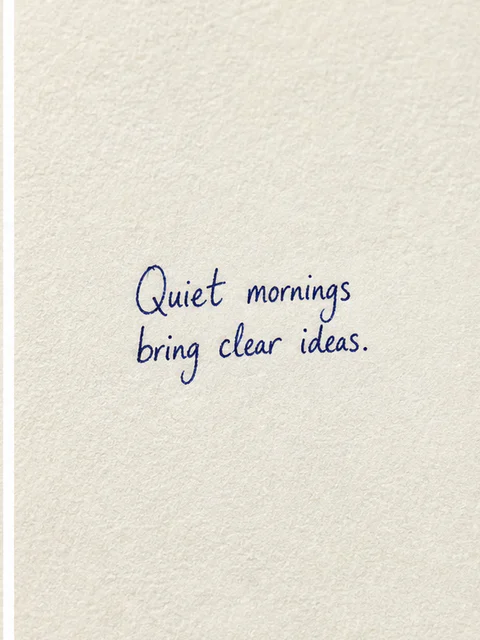 Quiet mornings
bring clear ideas.